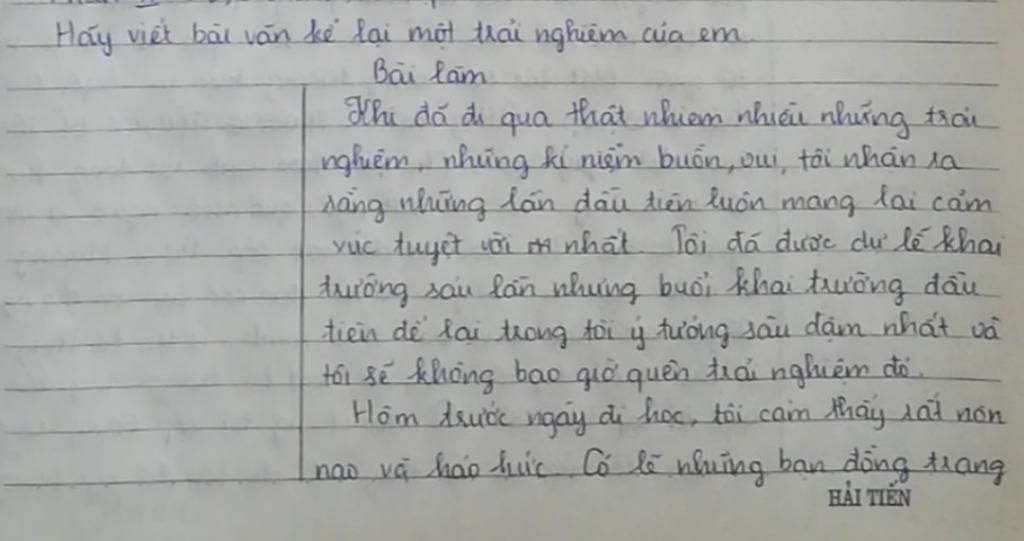 Hãy viết bài văn kể lại một trải nghiệm của em.
Bài làm
Khi đã đi qua thật nhiem nhiều những trải
nghiệm, những kỉ niệm buồn, vui, tôi nhận ra
rằng những lần đầu tiên luôn mang lại cảm
xúc tuyệt vời nhất. Tôi đã được dự lễ khai
trường sáu lần nhưng buổi khai trường đầu
tiên để lại trong tôi ý tưởng sâu đậm nhất và
tôi sẽ không bao giờ quên trải nghiệm đó.
Hôm trước ngày đi học, tôi cảm thấy rất nôn
nao và háo hức. Có lẽ những bạn đồng trang
HẢI TIẾN